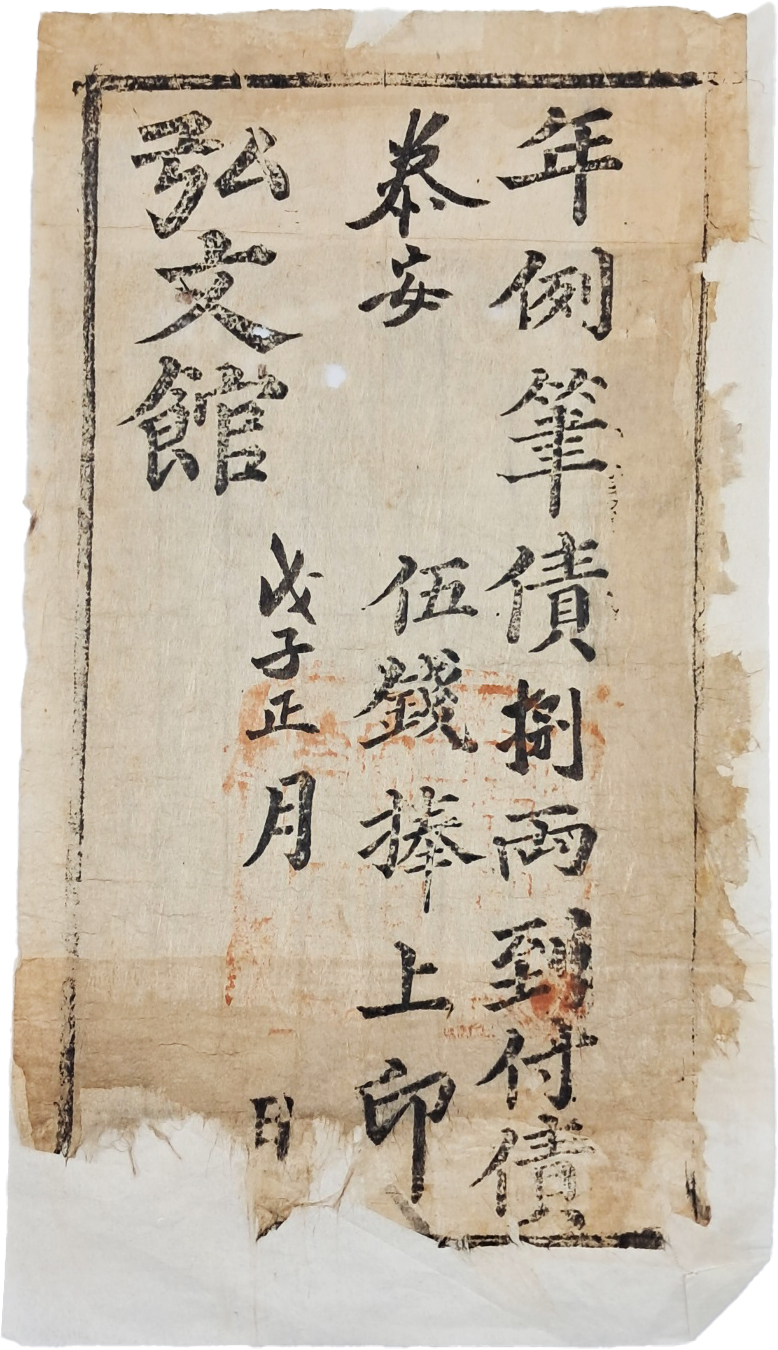 年例筆債捌兩到付債
泰安 伍錢捧上印
戊子正月 日
弘文館